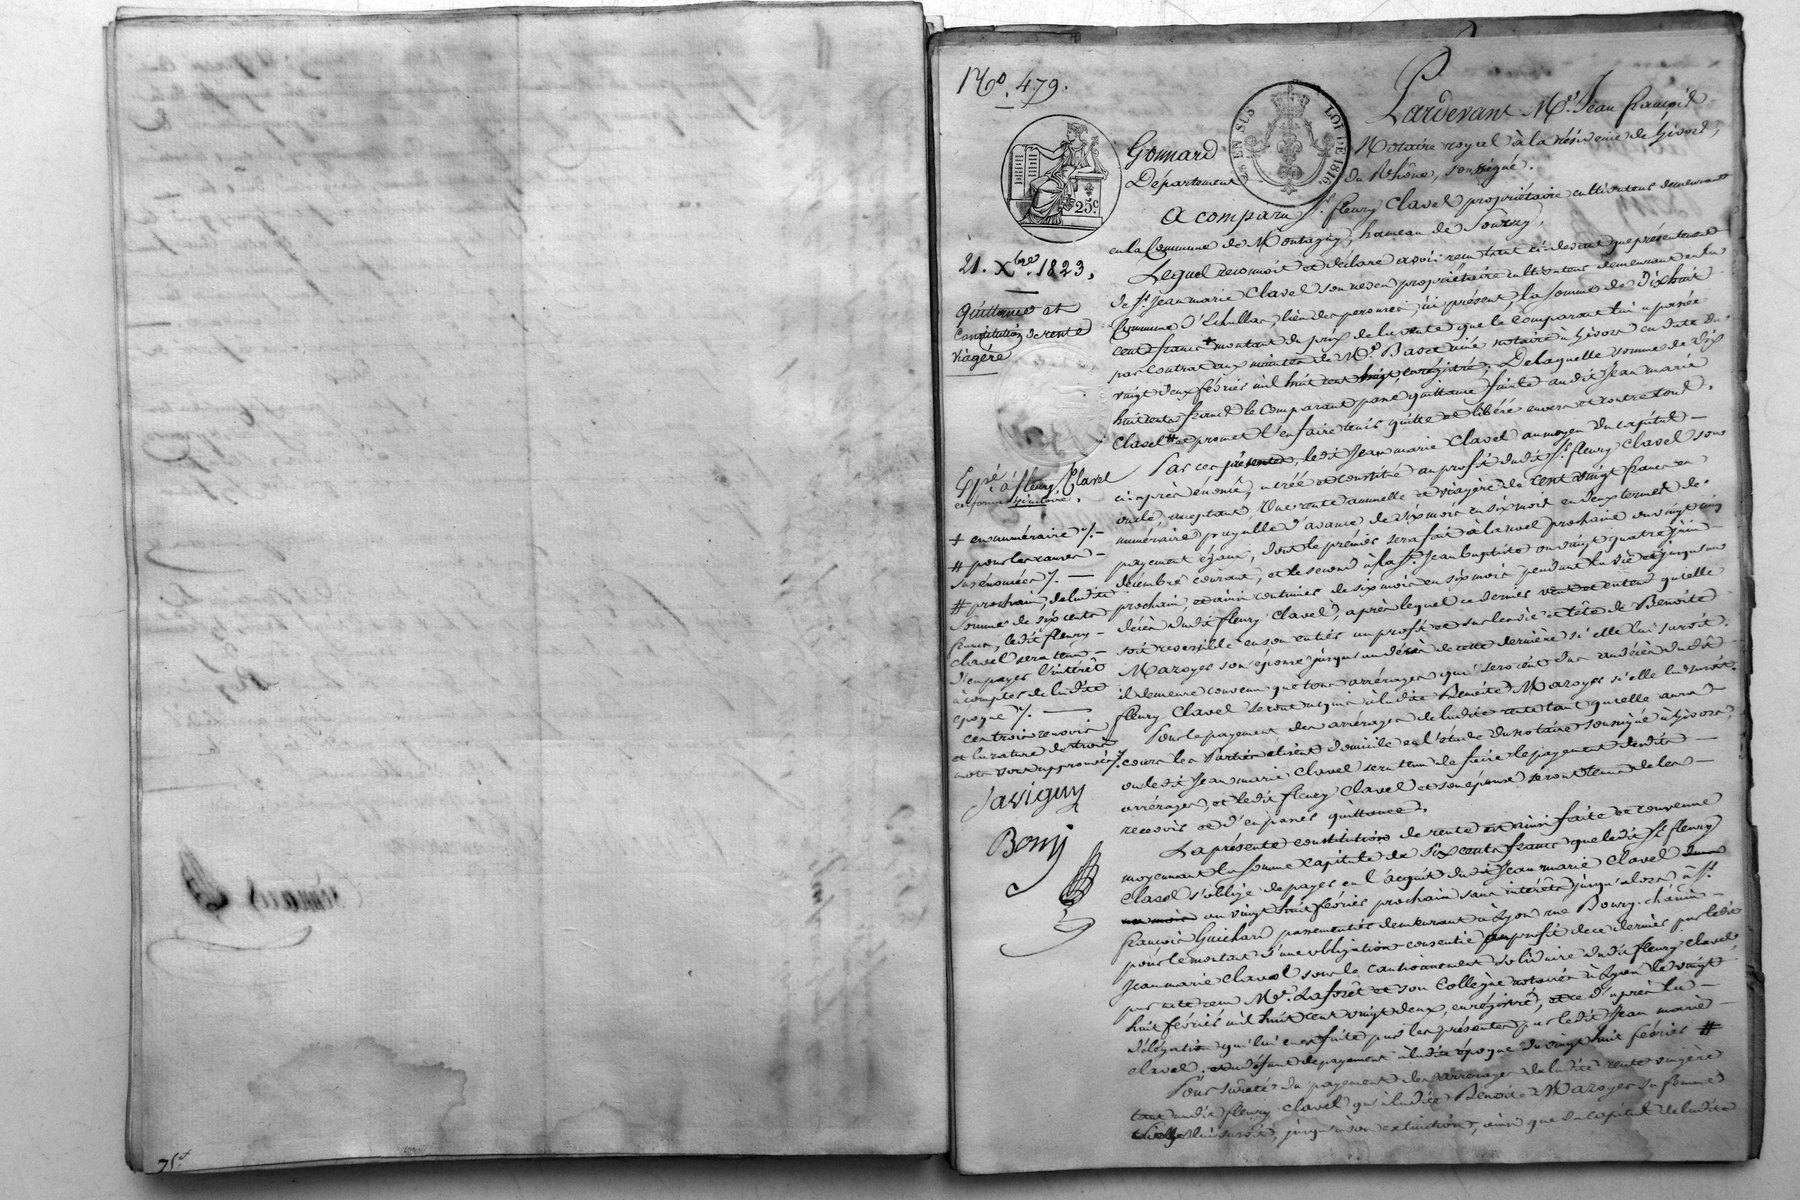 N.o 479.
Pardevant M.e Jean françois
Gonnard Notaire royal à la résidence de Givors,
Département du Rhône, soussigné.
TIMBRE EN SUS LOI DE 1816.
25.c
A comparu S.r fleury Clavel propriétaire cultivateur demeurant
en la Commune de Montagny, hameau de Sourzy,
Lequel reconnoit et déclare avoir reçu tant ci-devant que présentement
de S.r Jean marie Clavel son neveu propriétaire cultivateur demeurant en la
Commune d'Echallas, lieu des perouses, ici présent, la somme de Dixhuit
cent francs + montant du prix de la vente que le Comparant lui a passée
par Contrat aux minutes de M.e Basset ainé notaire à Givors en date du
vingt deux février mil huit cent vingt, enregistré; De laquelle somme de Dix
huit cents francs le Comparant passe quittance finale audit Jean marie
Clavel # et promet l'en faire tenir quitte et libéré envers et contre tous.
Par ces présentes, ledit Jean marie Clavel au moyen du capital
ci-après énoncé, a créé et constitué au profit dudit S.r fleury Clavel son
oncle, acceptant Une rente annuelle et viagère de cent vingt francs en
numéraire payable d'avance de six mois en six mois en deux termes de
payement égaux, dont le prémier sera fait à la noel prochaine ou vingt cinq
décembre courant, et le second à la S.t Jean baptiste ou vingt quatre juin
prochain, et ainsi continuer de six mois en six mois pendant la vie et jusqu'au
décès dudit fleury Clavel, après lequel ce dernier veut et entend qu'elle
soit reversible en son entier au profit et sur la vie et tête de Benoite
Mazoyer son épouse jusqu'au décès de cette dernière si elle lui survit.
il demeure convenu que tous arrérages qui seroient dus au décès dudit
fleury Clavel seront acquis à ladite Benoite Mazoyer si elle lui survit.
Pour le payement des arrérages de ladite rente tant qu'elle aura
cours les Parties élisent domicile en l'étude du notaire soussigné à Givors,
ou ledit Jean marie Clavel sera tenu de faire le payement desdits
arrérages, et ledit fleury Clavel et son épouse seront tenus de les
recevoir et d'en passer quittance.
La présente constitution de rente est ainsi faite et convenue
moyennant la somme capitale de Six cents francs que ledit S.r fleury
Clavel s'oblige de payer en l'acquit dudit Jean marie Clavel
au vingt huit février prochain sans intérêts jusqu'alors à S.r
françois Guichard passementier demeurant à Lyon rue Bourg-chanin
pour le montant d'une obligation consentie au profit de ce dernier par ledit
Jean marie Clavel sous le cautionnement solidaire dudit fleury Clavel
par acte reçu M.e Laforêt et son Collègue notaires à Lyon le vingt
huit février mil huit cent vingt deux, enregistré, et ce d'après la
délégation qui lui en est faite par les présentes par ledit Jean marie
Clavel. et à défaut de payement à ladite époque du vingt huit février #
Pour sureté du payement des arrérages de ladite rente viagère
tant audit fleury Clavel qu'à ladite Benoite Mazoyer sa femme
si elle lui survit, jusqu'à son extinction, ainsi que du capital de ladite
21. X.bre 1823,
Quittance et
Constitution de rente
viagère
Exp.é à fleury Clavel
en forme exécutoire.
+ en numéraire ./.
# pour les causes
susénoncées ./.
# prochain, de ladite
somme de six cents
francs, ledit fleury
Clavel sera tenu
d'en payer l'intérêt
à compter de ladite
époque ./.
ces trois renvois
et la rature de trois
mots sont approuvés ./.
Savigny
Bony